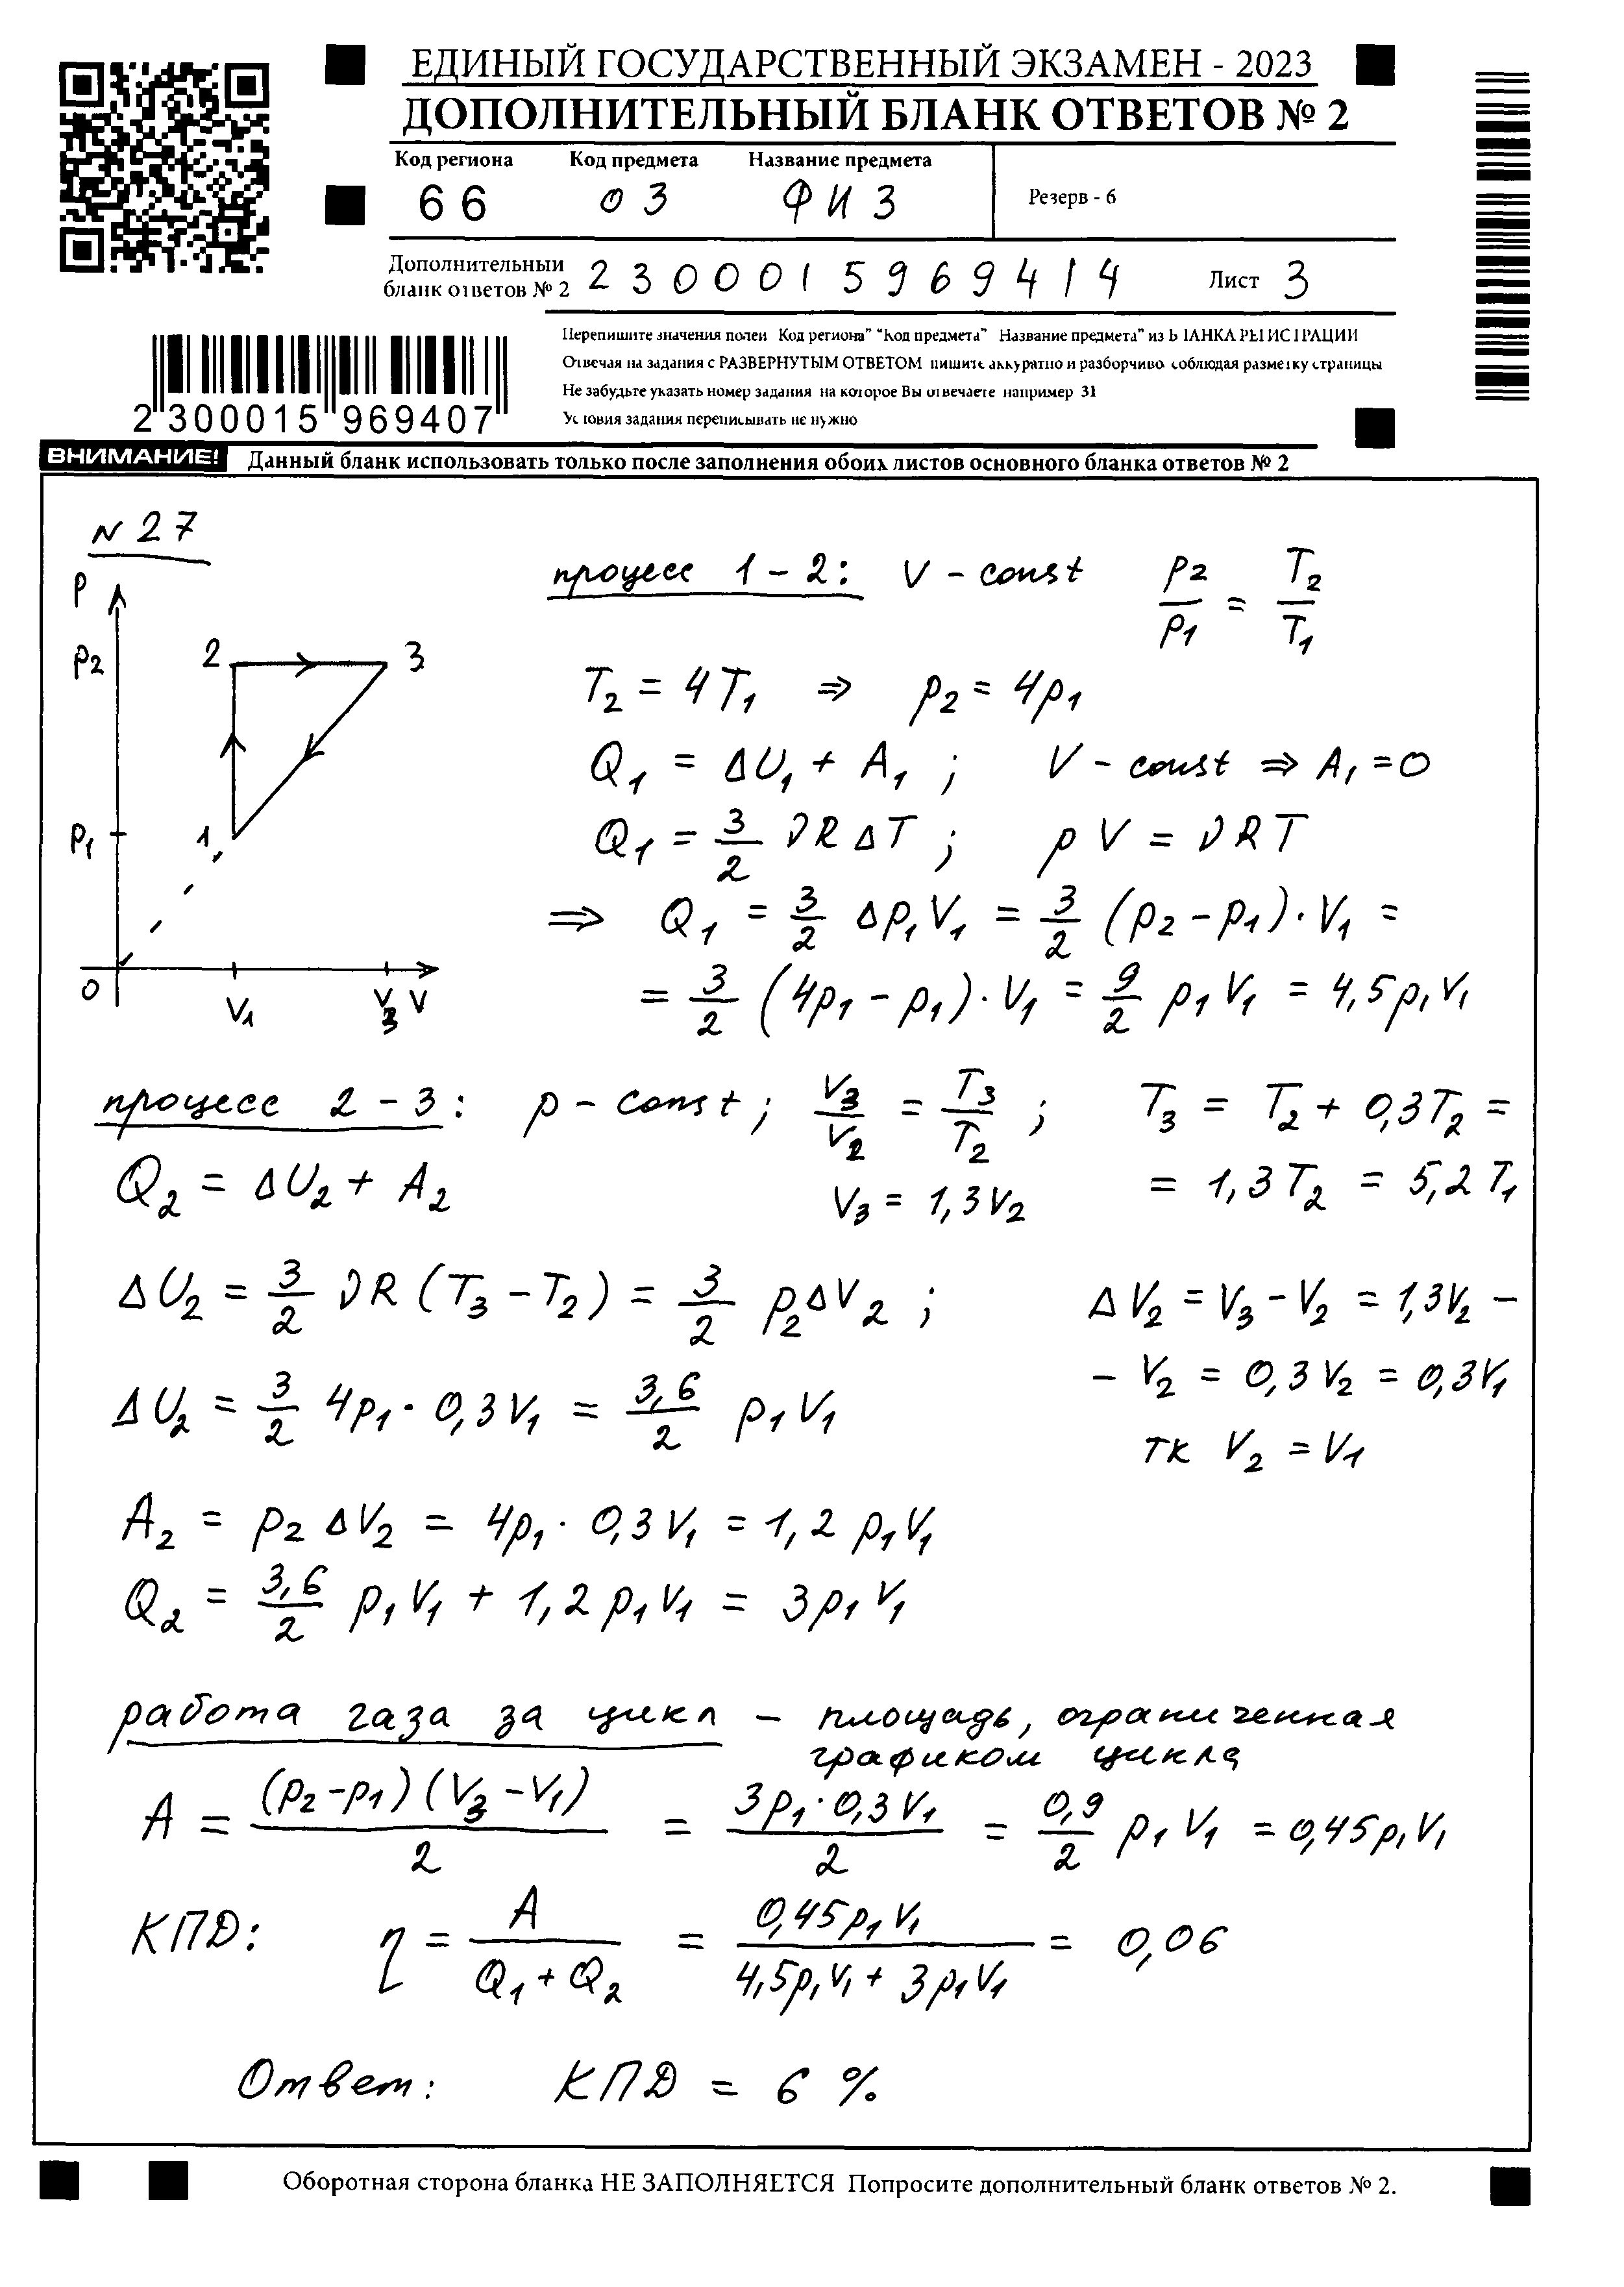 ЕДИНЫЙ ГОСУДАРСТВЕННЫЙ ЭКЗАМЕН - 2023
ДОПОЛНИТЕЛЬНЫЙ БЛАНК ОТВЕТОВ № 2
Код региона Код предмета Название предмета
66 03 ФИЗ Резерв - 6
Дополнительный бланк ответов № 2 2300015969414 Лист 3
Перепишите значения полей Код региона" "Код предмета" Название предмета" из БЛАНКА РЕГИСТРАЦИИ
Отвечая на задания с РАЗВЕРНУТЫМ ОТВЕТОМ пишите аккуратно и разборчиво соблюдая разметку страницы
Не забудьте указать номер задания на которое Вы отвечаете например 31
Условия задания переписывать не нужно
2 300015 969407
ВНИМАНИЕ! Данный бланк использовать только после заполнения обоих листов основного бланка ответов № 2
N 27
P
P2 2 3
P1 1
0 V1 V3 V
процесс 1 - 2: V - const p2/p1 = T2/T1
T2 = 4T1 ⇒ p2 = 4p1
Q1 = ΔU1 + A1 ; V - const ⇒ A1 = 0
Q1 = 3/2 νRΔT ; pV = νRT
⇒ Q1 = 3/2 Δp1V1 = 3/2 (p2 - p1)·V1 =
= 3/2 (4p1 - p1)·V1 = 9/2 p1V1 = 4,5p1V1
процесс 2 - 3: p - const ; V3/V2 = T3/T2 ; T3 = T2 + 0,3T2 =
Q2 = ΔU2 + A2 V3 = 1,3V2 = 1,3T2 = 5,2T1
ΔU2 = 3/2 νR(T3 - T2) = 3/2 p2ΔV2 ; ΔV2 = V3 - V2 = 1,3V2 -
- V2 = 0,3V2 = 0,3V1
ΔU2 = 3/2 4p1·0,3V1 = 3,6/2 p1V1
тк V2 = V1
A2 = p2ΔV2 = 4p1·0,3V1 = 1,2p1V1
Q2 = 3,6/2 p1V1 + 1,2p1V1 = 3p1V1
работа газа за цикл - площадь, ограниченная
графиком цикла
A = (p2-p1)(V3-V1)/2 = 3p1·0,3V1/2 = 0,9/2 p1V1 = 0,45p1V1
КПД: η = A/(Q1+Q2) = 0,45p1V1/(4,5p1V1 + 3p1V1) = 0,06
Ответ: КПД = 6 %
Оборотная сторона бланка НЕ ЗАПОЛНЯЕТСЯ Попросите дополнительный бланк ответов № 2.